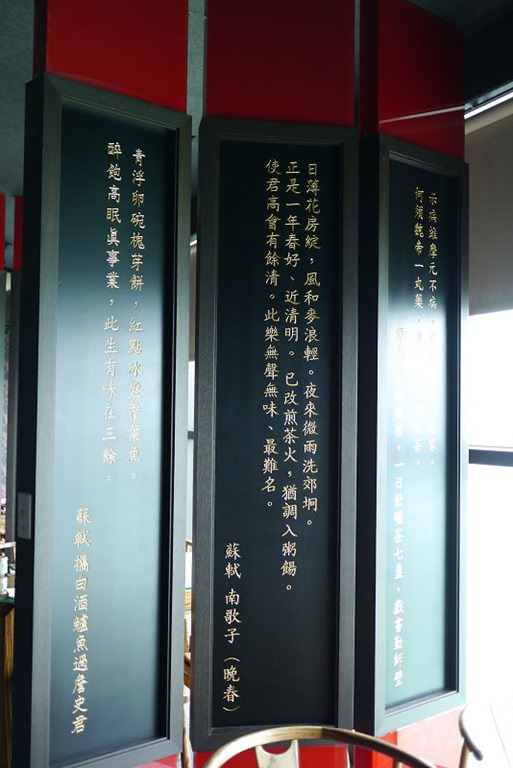 示病維摩元不病，
何須魏帝一丸藥，茶。
一日飲釅茶七盞，戲書勤師壁
日薄花房綻，風和麥浪輕。夜來微雨洗郊坰。
正是一年春好、近清明。已改煎茶火，猶調入粥餳。
使君高會有餘清。此樂無聲無味、最難名。
蘇軾 南歌子（晚春）
青浮卵碗槐芽餅，紅點冰盤藿葉魚。
醉飽高眠眞事業，此生有味在三餘。
蘇軾 攜白酒鱸魚過詹史君